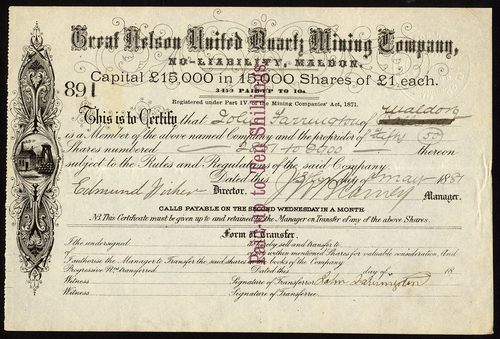 Great Nelson United Quartz Mining Company,
NO-LIABILITY, MALDON.
Capital £15,000 in 15,000 Shares of £1 each.
PAID UP TO 10s.
Registered under Part IV. of the Mining Companies' Act, 1871.
891
This is to Certify that John Farrington of Maldon
is a Member of the above named Company and the proprietor of Fifty 50
Shares numbered to thereon
subject to the Rules and Regulations of the said Company.
Dated this day of May 1881
Edmund Director. Manager.
Paid up to Ten Shillings
CALLS PAYABLE ON THE SECOND WEDNESDAY IN A MONTH
N.B. This Certificate must be given up to and retained by the Manager on Transfer of any of the above Shares.
Form of Transfer.
I the undersigned hereby sell and transfer to
within mentioned Shares for valuable consideration And
I authorise the Manager to Transfer the said shares books of the Company
Progressive No. transferred. Dated this day of 18
Witness Signature of Transferror John Farrington
Witness Signature of Transferree